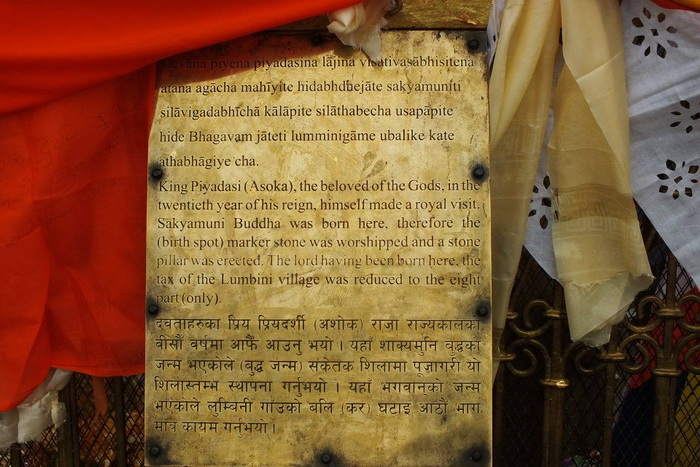 piyena piyadasina lājina vīsativasābhisitena
atana agācha mahīyite hidabhdhejāte sakyamunīti
silāvigadabhīchā kālāpite silāthabecha usapāpite
hide Bhagavaṃ jāteti lumminigāme ubalike kate
athabhāgiye cha.
King Piyadasi (Asoka), the beloved of the Gods, in the
twentieth year of his reign, himself made a royal visit.
Sākyamuni Buddha was born here, therefore the
(birth spot) marker stone was worshipped and a stone
pillar was erected. The lord having been born here, the
tax of the Lumbini village was reduced to the eight
part (only).
देवताहरुका प्रिय प्रियदर्शी (अशोक) राजा राज्यकालका
बीसौं वर्षमा आफै आउनु भयो । यहाँ शाक्यमुनि बुद्धका
जन्म भएकोले (बुद्ध जन्म) संकेतक शिलामा पूजागरी यो
शिलास्तम्भ स्थापना गर्नुभयो । यहाँ भगवानको जन्म
भएकोले लुम्बिनी गाउँको बलि (कर) घटाइ आठौं भाग
मात्र कायम गर्नुभयो ।